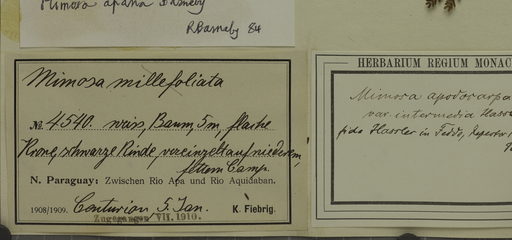 Mimosa apana Barneby
RBarneby 84
Mimosa millefoliata
№ 4540. weiss, Baum, 5m, flache
Krone, schwarze Rinde, vereinzelt auf niederem,
fettem Camp.
N. Paraguay: Zwischen Rio Apa und Rio Aquidaban.
1908/1909. Centurion 5. Jan. K. Fiebrig.
Zugegangen VII. 1910.
HERBARIUM REGIUM MONAC
Mimosa apodocarpa
var. intermedia Hassl
fide Hassler in Fedde, Repert